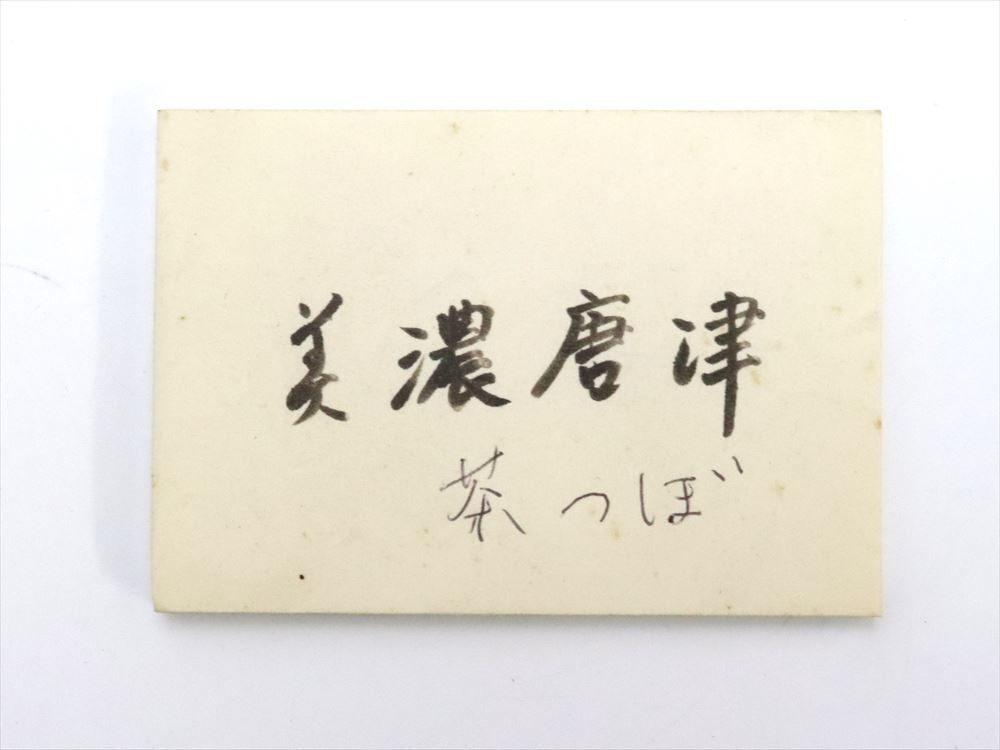 美濃唐津
茶つぼ